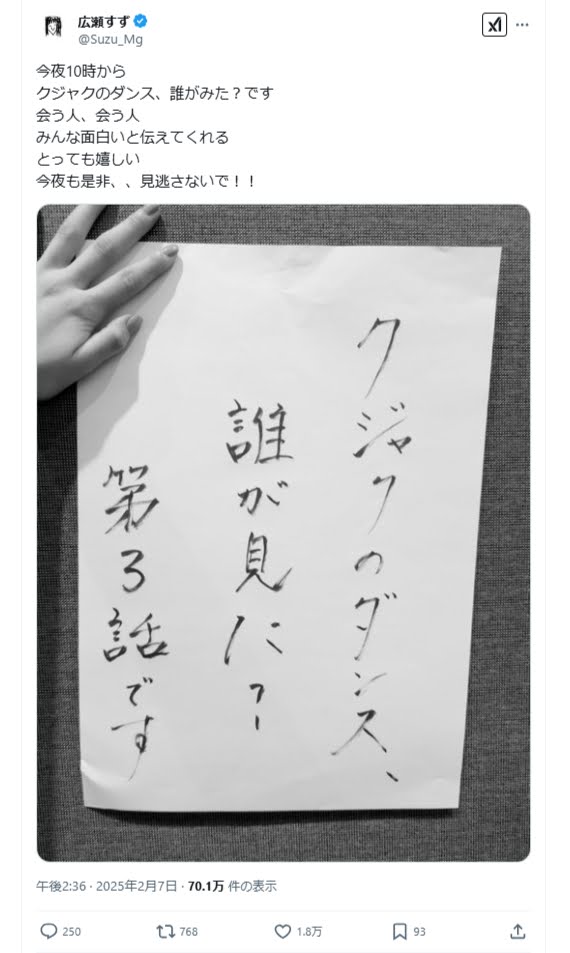 広瀬すず
@Suzu_Mg
今夜10時から
クジャクのダンス、誰がみた？です
会う人、会う人
みんな面白いと伝えてくれる
とっても嬉しい
今夜も是非、、見逃さないで！！
クジャクのダンス、
誰が見た？
第3話です
午後2:36 · 2025年2月7日 · 70.1万 件の表示
250 768 1.8万 93